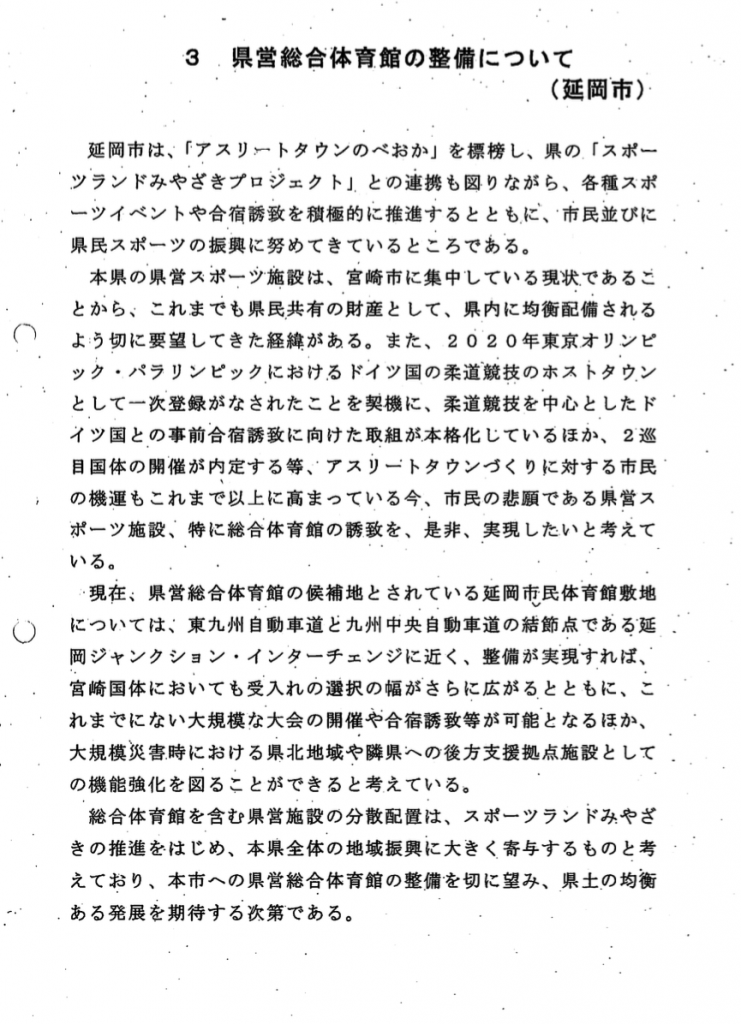 3 県営総合体育館の整備について
（延岡市）
延岡市は、「アスリートタウンのべおか」を標榜し、県の「スポー
ツランドみやざきプロジェクト」との連携も図りながら、各種スポ
ーツイベントや合宿誘致を積極的に推進するとともに、市民並びに
県民スポーツの振興に努めてきているところである。
本県の県営スポーツ施設は、宮崎市に集中している現状であるこ
とから、これまでも県民共有の財産として、県内に均衡配備される
よう切に要望してきた経緯がある。また、２０２０年東京オリンピ
ック・パラリンピックにおけるドイツ国の柔道競技のホストタウン
として一次登録がなされたことを契機に、柔道競技を中心としたド
イツ国との事前合宿誘致に向けた取組が本格化しているほか、２巡
目国体の開催が内定する等、アスリートタウンづくりに対する市民
の機運もこれまで以上に高まっている今、市民の悲願である県営ス
ポーツ施設、特に総合体育館の誘致を、是非、実現したいと考えて
いる。
現在、県営総合体育館の候補地とされている延岡市民体育館敷地
については、東九州自動車道と九州中央自動車道の結節点である延
岡ジャンクション・インターチェンジに近く、整備が実現すれば、
宮崎国体においても受入れの選択の幅がさらに広がるとともに、こ
れまでにない大規模な大会の開催や合宿誘致等が可能となるほか、
大規模災害時における県北地域や隣県への後方支援拠点施設として
の機能強化を図ることができると考えている。
総合体育館を含む県営施設の分散配置は、スポーツランドみやざ
きの推進をはじめ、本県全体の地域振興に大きく寄与するものと考
えており、本市への県営総合体育館の整備を切に望み、県土の均衡
ある発展を期待する次第である。